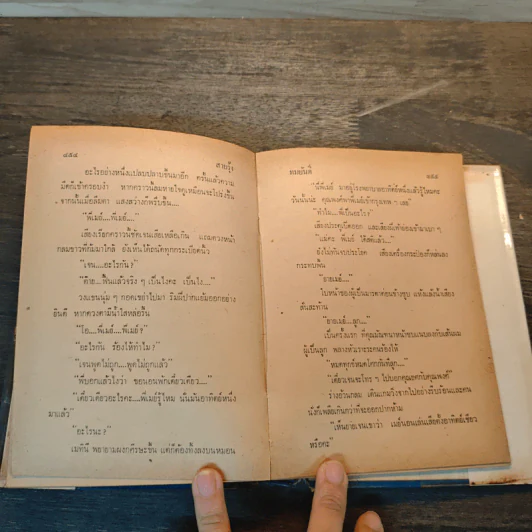 ๔๕๔
สายรุ้ง
อะไรอย่างหนึ่งแปลบปลาบขึ้นมาอีก ครั้นแล้วความ
มืดก็เข้าครอบงำ หากคราวนี้ลมหายใจดูเหมือนจะโปร่งขึ้น
จากนั้นเมื่อลืมตา แสงสว่างก็พร่างขึ้น....
"พี่เมธ์....พี่เมธ์...."
เสียงเรียกคราวนี้ชัดเจนเสียเหลือเกิน แถมดวงหน้า
กลมขาวที่ก้มมาใกล้ ยังเห็นได้ถนัดทุกกระเบียดนิ้ว
"เจน....อะไรกัน?"
"อ๊าย....ฟื้นแล้วจริง ๆ เป็นไงคะ เป็นไง...."
วงแขนนุ่ม ๆ กอดเขย่าไปมา ริมฝีปากแย้มออกอย่าง
ยินดี หากดวงตามีน้ำใสหล่อรื้น
"โอ....พี่เมธ์....พี่เมธ์?"
"อะไรกัน ร้องไห้ทำไม?"
"เจนพูดไม่ถูก....พูดไม่ถูกแล้ว"
"พี่บอกแล้วไงว่า ขอนอนพักเดี๋ยวเดียว...."
"เดี๋ยวเดียวอะไรคะ....พี่เมธ์รู้ไหม นี่มันอาทิตย์หนึ่ง
มาแล้ว"
"อะไรนะ?"
เมทินี พยายามผงกศีรษะขึ้น แต่ก็ต้องทิ้งลงบนหมอน
ทมยันตี
๔๕๕
"นี่พี่เมธ์ มาอยู่โรงพยาบาลอาทิตย์หนึ่งแล้วรู้ไหมคะ
วันนั้นน่ะ คุณพงศ์พาพี่เมธ์เข้ากรุงเทพ ฯ เลย"
"ทำไม....พี่เป็นอะไร?"
เสียงประตูเปิดออก และเสียงฝีเท้าเดินเข้ามาเบา ๆ
"แม่คะ พี่เมธ์ ได้สติแล้ว...."
ยังไม่ทันจบประโยค เสียงเครื่องกระป๋องก็หล่นลง
กระทบพื้น
"ยายเมธ์...."
ใบหน้าของผู้เป็นมารดาค่อนข้างซูบ แห้งแล้งน้ำเสียง
สั่นสะท้าน
"ยายเมธ์....ลูก...."
เป็นครั้งแรก ที่คุณมัณฑนาหน้าซบแนบลงกับเส้นผม
ผู้เป็นลูก พลางหัวเราะระคนร้องไห้
"หมดทุกข์หมดโศกกันทีลูก...."
"เดี๋ยวเจนจะโทร ฯ ไปบอกคุณอดกับคุณพงศ์"
ร่างอ้วนกลม เดินแกมวิ่งจากไปอย่างรีบร้อนและคน
นั่งก็เพลียเกินกว่าที่จะออกปากห้าม
"เห็นยายเจนเขาว่า เมธ์นอนเล่นเสียตั้งอาทิตย์เชียว
หรือคะ